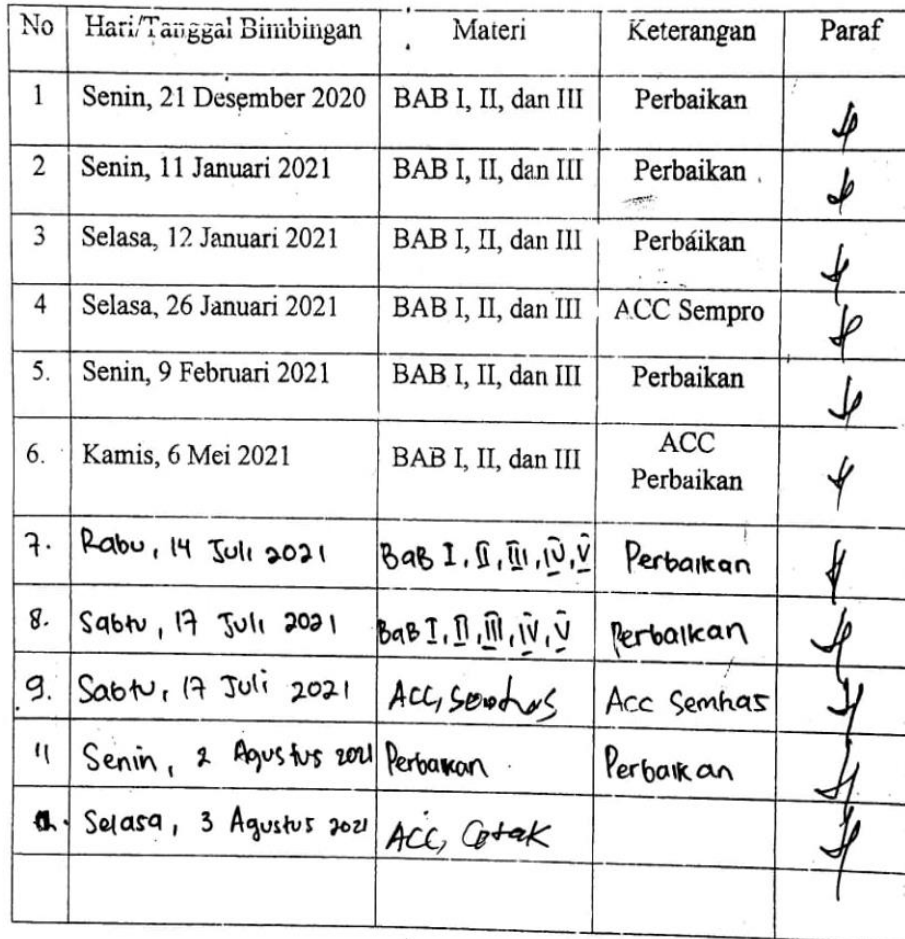 No Hari/Tanggal Bimbingan Materi Keterangan Paraf
1 Senin, 21 Desember 2020 BAB I, II, dan III Perbaikan
2 Senin, 11 Januari 2021 BAB I, II, dan III Perbaikan
3 Selasa, 12 Januari 2021 BAB I, II, dan III Perbaikan
4 Selasa, 26 Januari 2021 BAB I, II, dan III ACC Sempro
5. Senin, 9 Februari 2021 BAB I, II, dan III Perbaikan
6. Kamis, 6 Mei 2021 BAB I, II, dan III ACC
Perbaikan
7. Rabu, 14 Juli 2021 BaB I, II, III, IV, V Perbaikan
8. Sabtu, 17 Juli 2021 BaB I, II, III, IV, V Perbaikan
9. Sabtu, 17 Juli 2021 ACC, Semhas Acc Semhas
11 Senin, 2 Agustus 2021 Perbaikan Perbaikan
Selasa, 3 Agustus 2021 ACC, Cetak